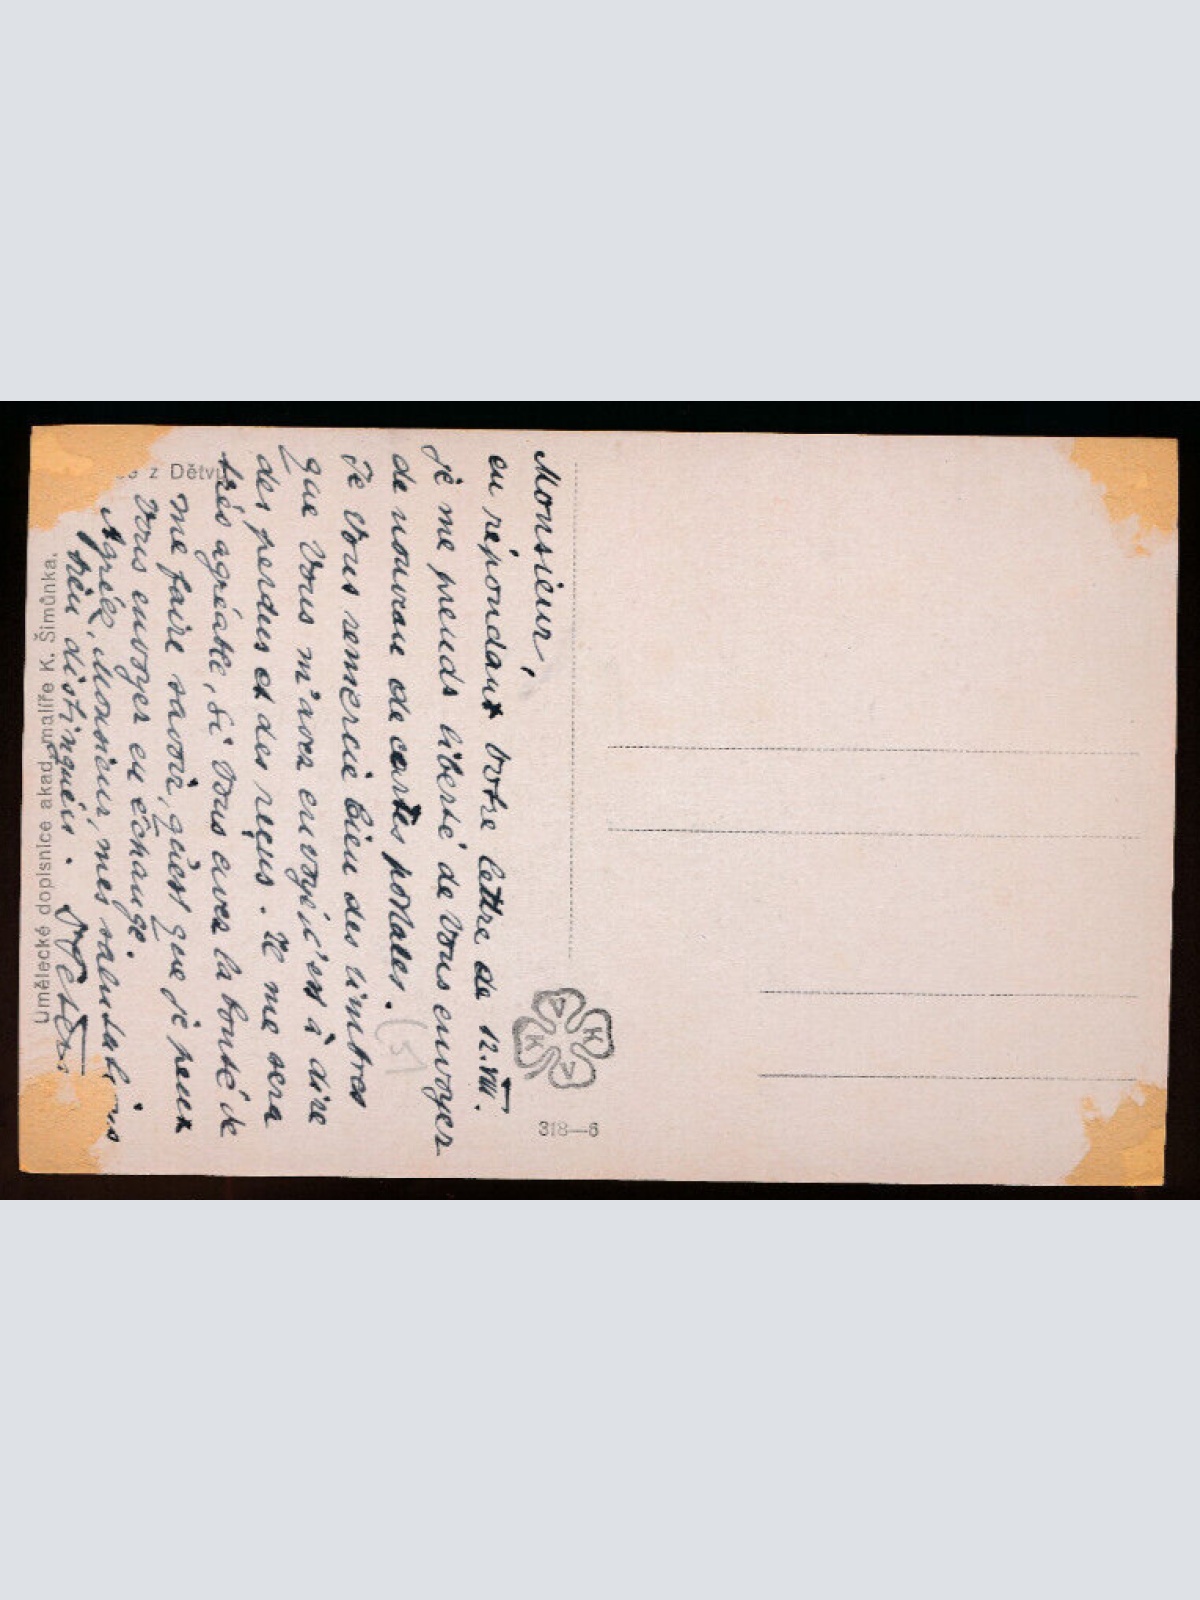 Monsieur,
en répondant Votre lettre de 12.VIII.
je me prends liberté de Vous envoyer
de nouveau de cartes postales.
Je Vous remercie bien des timbres
que Vous m'avez envoyé, c'est à dire
des perdus et des reçus. Il me sera
très agréable, si Vous avez la bonté de
me faire savoir, qu'est que je peux
Vous envoyer en échange.
Agréez, Monsieur, mes salutations
bien distinguées.
(5)
z Dětvy
Umělecké dopisnice akad. malíře K. Šimůnka.
K V K V
318—6